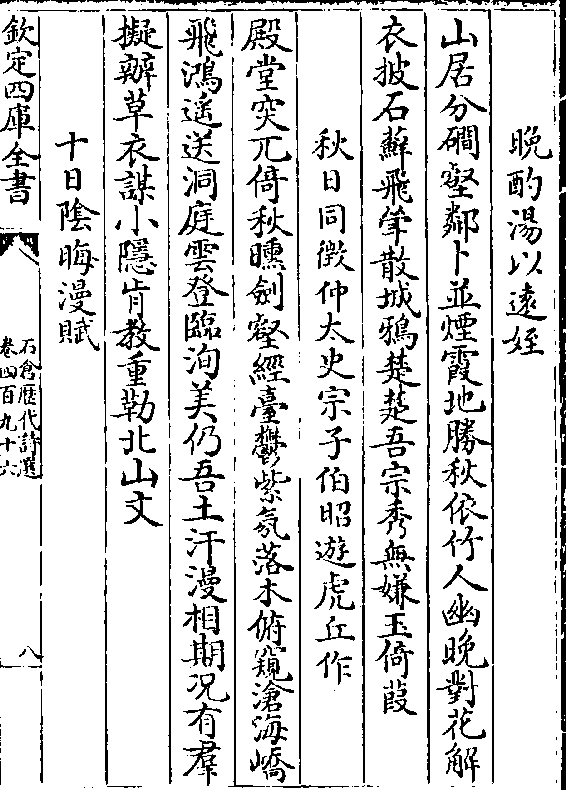 晚酌湯以遠姪
山居分磵壑鄰卜並煙霞地勝秋依竹人幽晚對花解
衣披石蘚飛斝散城鴉楚楚吾宗秀無嫌玉倚葭
秋日同徵仲太史宗子伯昭遊虎丘作
殿堂突兀倚秋曛劍壑經臺鬱紫氛落木俯窺滄海嶠
飛鴻遙送洞庭雲登臨洵美仍吾土汗漫相期况有羣
擬辦草衣謀小隱肯教重勒北山文
十日陰晦漫賦
欽定四庫全書
石倉歷代詩選
卷四百九十六
八